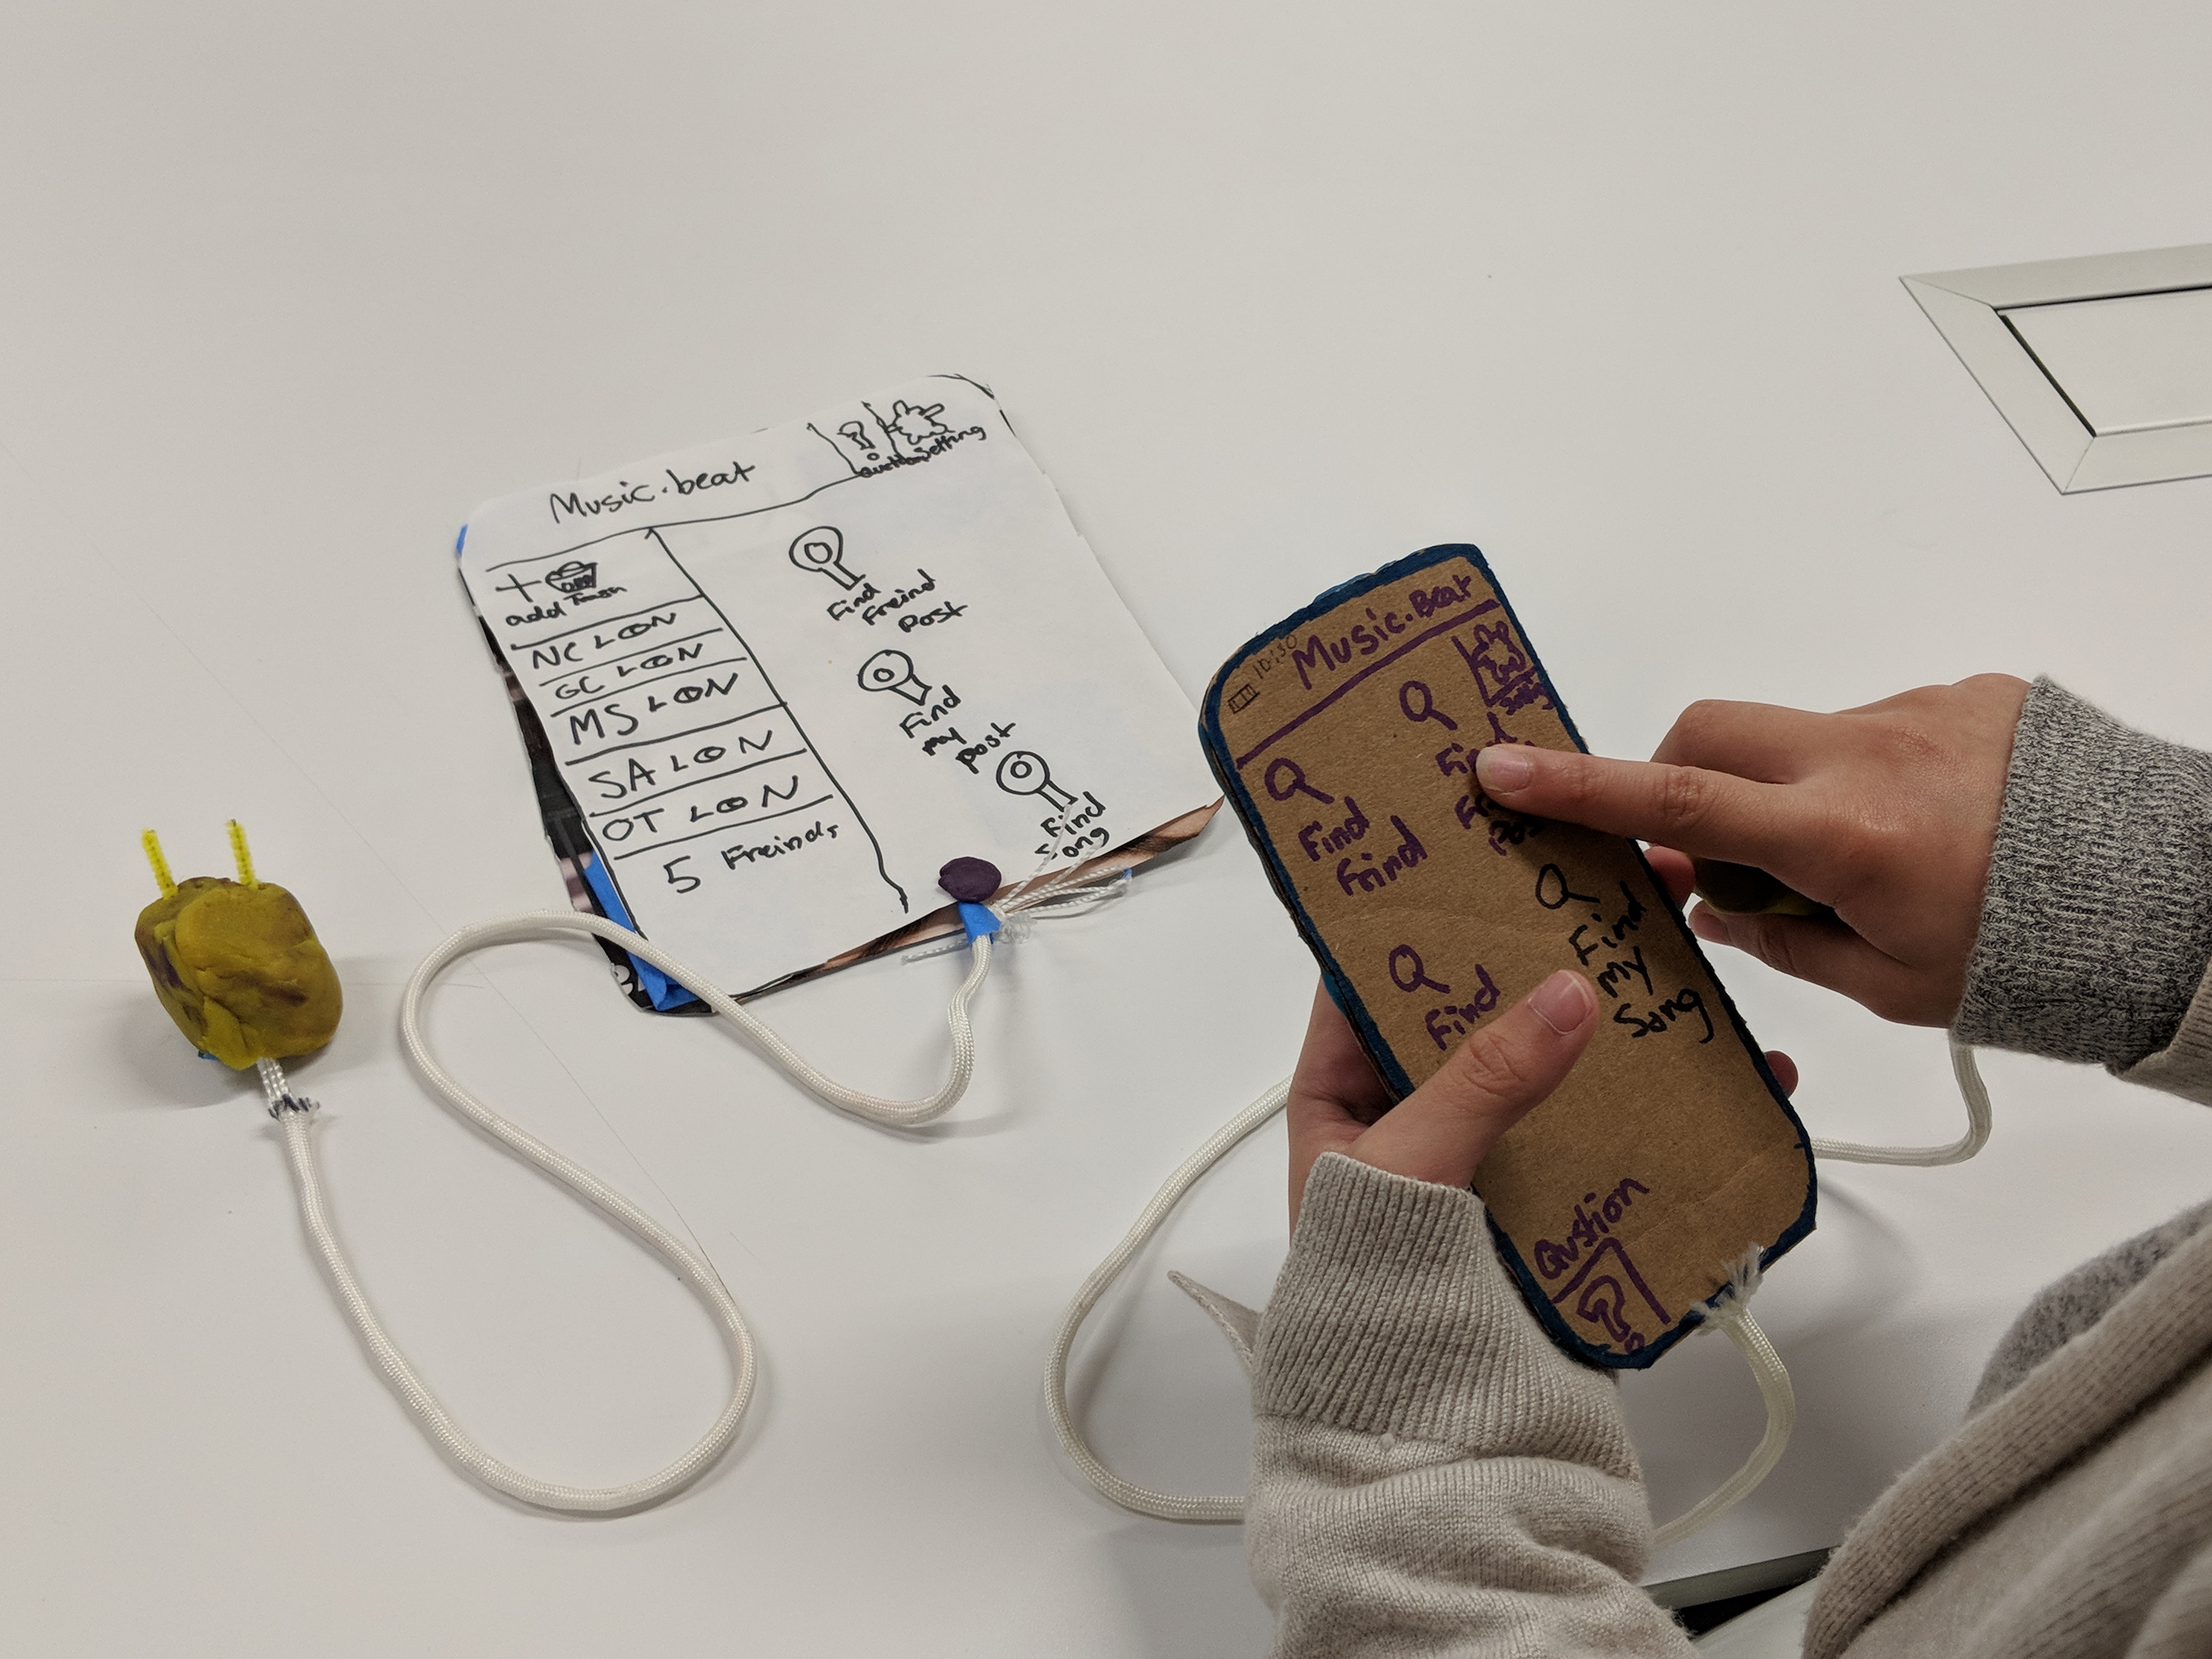 Music.beat
Qustion
Setting
+
add Trash
NC LON
GC LON
MS LON
SA LON
OT LON
5 Freinds
Find
Freind
Post
Find
my
post
Find
Song
10:30
Music.Beat
Setting
Find
Frind
Find
Find
Find
My
Song
Qustion
?